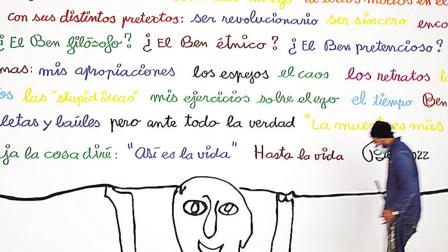 con sus distintos pretextos: ser revolucionario ser sincero
¿El Ben filósofo? ¿El Ben étnico? ¿El Ben pretencioso?
mis apropiaciones los espejos el caos los retratos
las "stupid ideas" mis ejercicios sobre el ego el tiempo Ben
y baúles pero ante todo la verdad "La muerte es más
la cosa diré: "Así es la vida" Hasta la vida
2022